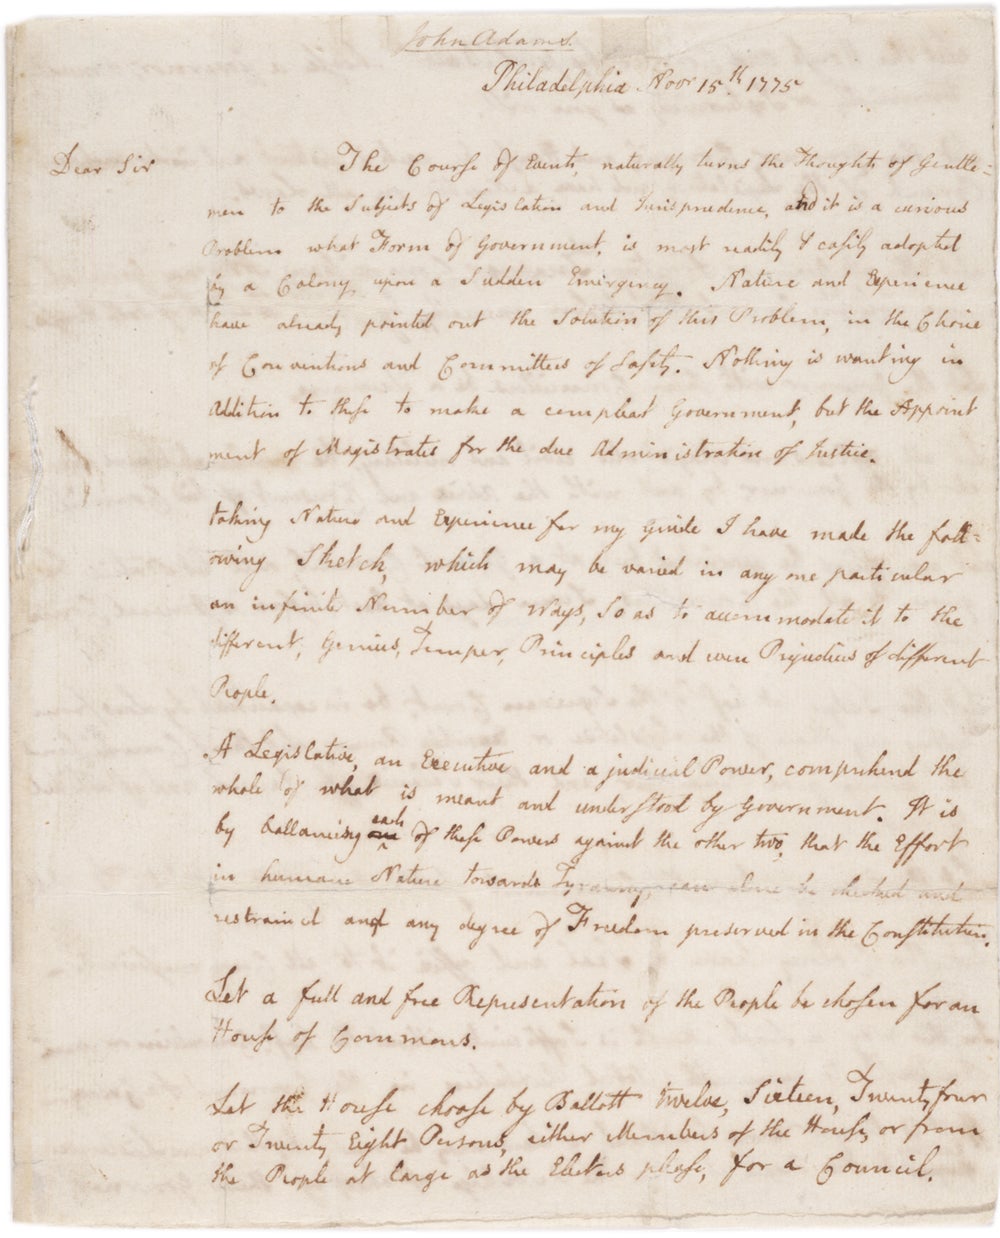 John Adams.
Philadelphia Novr 15.th 1775
Dear Sir
The Course of Events, naturally turns the Thoughts of Gentle=
men to the Subjects of Legislation and Jurisprudence, and it is a curious
Problem what Form of Government, is most readily & easily adopted
by a Colony, upon a Sudden Emergency. Nature and Experience
have already pointed out the Solution of this Problem, in the Choice
of Conventions and Committees of Safety. Nothing is wanting in
Addition to these to make a compleat Government, but the Appoint
ment of Magistrates for the due Administration of Justice.
taking Nature and Experience for my Guide I have made the foll=
owing Sketch, which may be varied in any one particular
an infinite Number of Ways, So as to accommodate it to the
different, Genius, Temper, Principles and even Prejudices of different
People.
A Legislative, an Executive and a judicial Power, comprehend the
whole of what is meant and understood by Government. It is
by ballancing each of these Powers against the other two, that the Effort
in humane Nature towards Tyranny, can alone be checked and
restrained and any degree of Freedom preserved in the Constitution.
Let a full and free Representation of the People be chosen for an
House of Commons.
Let the House choose by Ballott twelve, Sixteen, Twenty four
or Twenty Eight Persons, either Members of the House, or from
the People at large as the Electors please, for a Council.